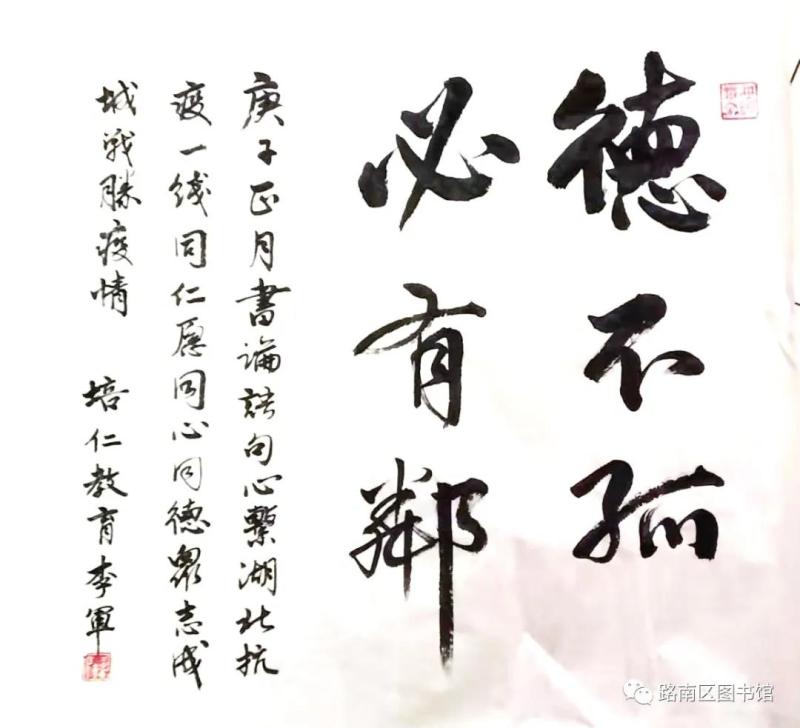 德不孤
必有鄰
庚子正月書論語句心繫湖北抗
疫一线同仁愿同心同德眾志成
城戰勝疫情 培仁教育李軍
路南区图书馆